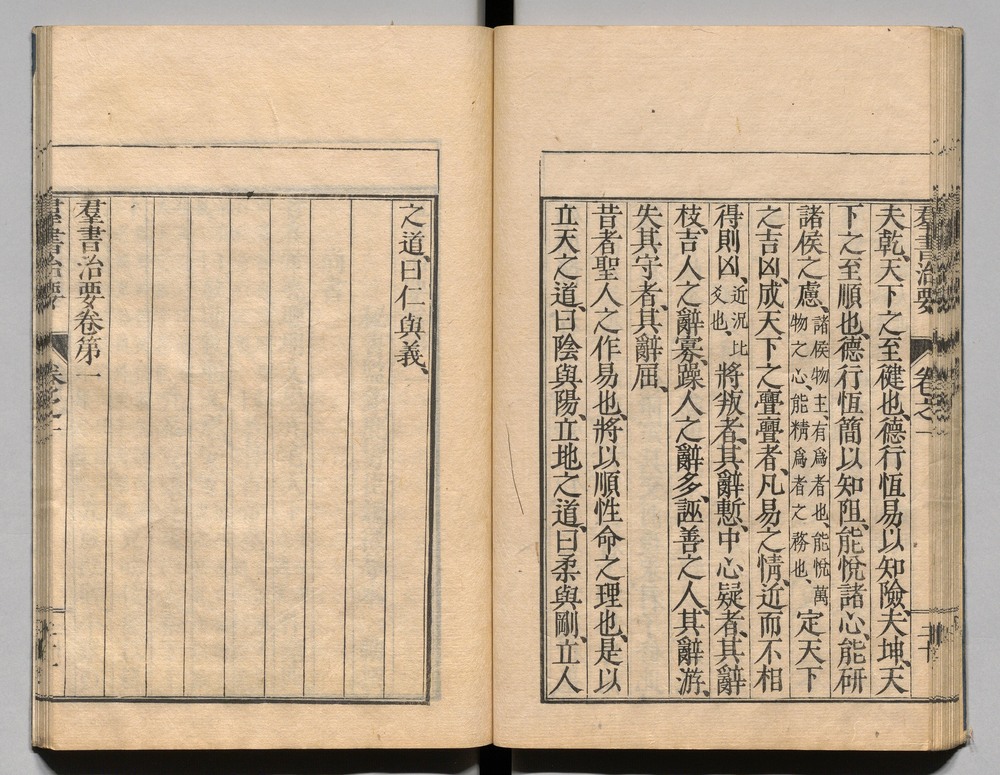 羣書治要 卷之一 二十
夫乾、天下之至健也、德行恆易以知險、夫坤、天
下之至順也、德行恆簡以知阻、能悅諸心、能研
諸侯之慮、諸侯物主、有爲者也、能悅萬物之心、能精爲者之務也、定天下
之吉凶、成天下之亹亹者、凡易之情、近而不相
得則凶、近況比爻也、將叛者、其辭慙、中心疑者、其辭
枝、吉人之辭寡、躁人之辭多、誣善之人、其辭游、
失其守者、其辭屈、
昔者聖人之作易也、將以順性命之理也、是以
立天之道、曰陰與陽、立地之道、曰柔與剛、立人
之道、曰仁與義、
羣書治要卷第一
羣書治要 卷之一